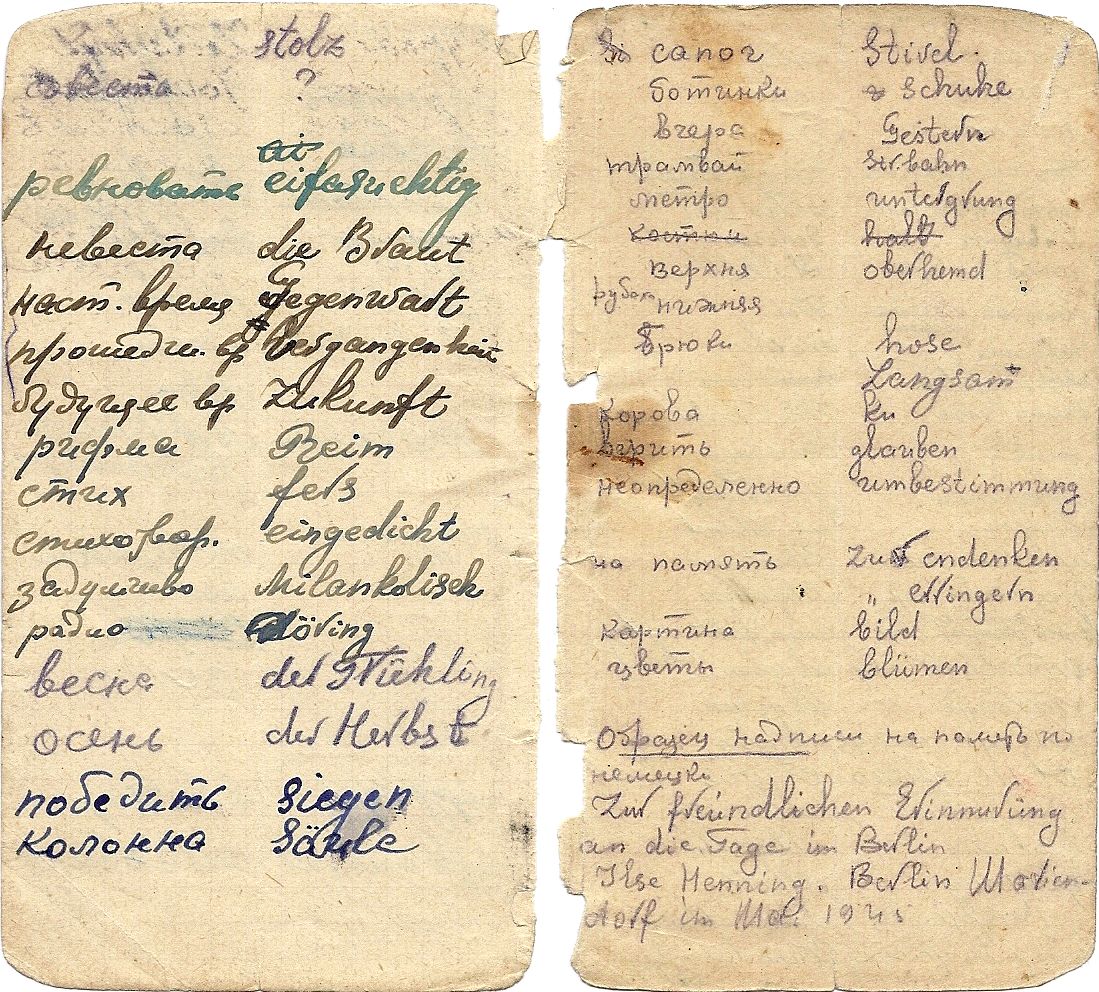 stolz
совеста ?
ai
ревновать eifasuchtig
невеста die Braut
наст. время Gegenwart
прошедш. вр Vergangenheit
будущее вр Zukunft
рифма Reim
стих fers
стихотвор. eingedicht
задумчиво Milankolisch
радио döring
весна der Frühling
осень der Herbst
победить siegen
колонна Säule
сапог Stivel.
ботинки Schuhe
вчера Gestern
трамвай str.bahn
метро untergrung
костюм halb
верхня oberhemd
рубаш нижняя
Брюки hose
Langsam
Корова Ku
вѣрить glauben
неопределенно umbestimmung
на память zur endenken
" erringern
картина bild
цветы blümen
Образец надписи на память по
немецки
Zur freundlichen Erinnerüng
an die Tage in Berlin
Ilse Henning. Berlin Marien-
dorf im Mai 1945